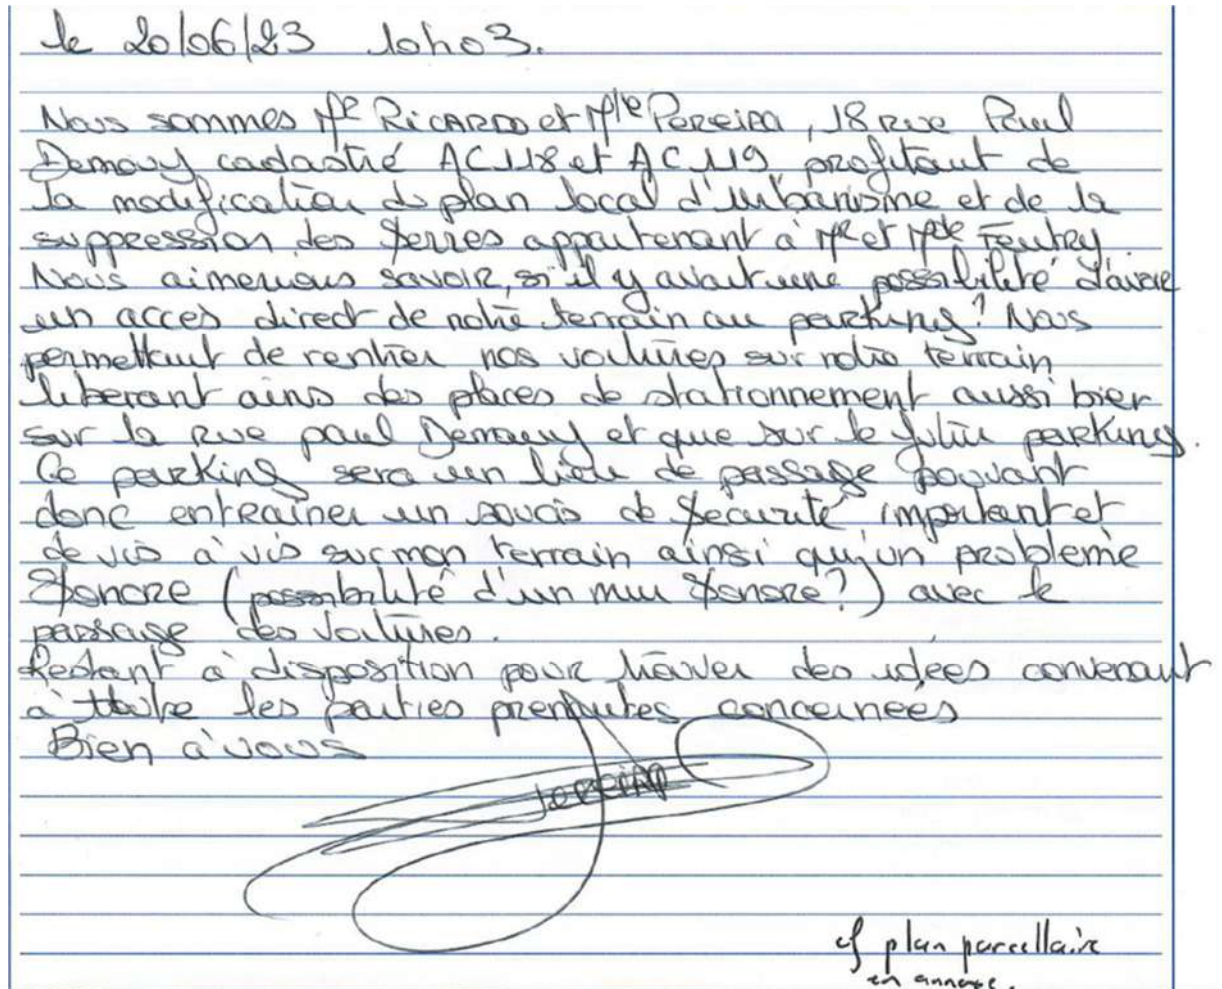 le 20/06/23 10h03.
Nous sommes Mr RicARDO et Mlle Pereira, 18 rue Paul
Demouy cadastré AC 118 et AC 119, profitant de
la modification du plan local d'urbanisme et de la
suppression des serres appartenant à Mr et Mde Feutry.
Nous aimerions savoir, si il y avait une possibilité d'avoir
un accès direct de notre terrain au parking? Nous
permettant de rentrer nos voitures sur notre terrain
liberant ains des places de stationnement aussi bien
sur la rue paul Demouy et que sur le futur parking.
Ce parking sera un lieu de passage pouvant
donc entrainer un soucis de securité important et
de vis à vis sur mon terrain ainsi qu'un probleme
sonore (possibilité d'un mur sonore?) avec le
passage des voitures.
Restant à disposition pour trouver des idées convenant
à les parties prenantes concernées
Bien à vous
Pereira
cf plan parcellaire
en annexe.